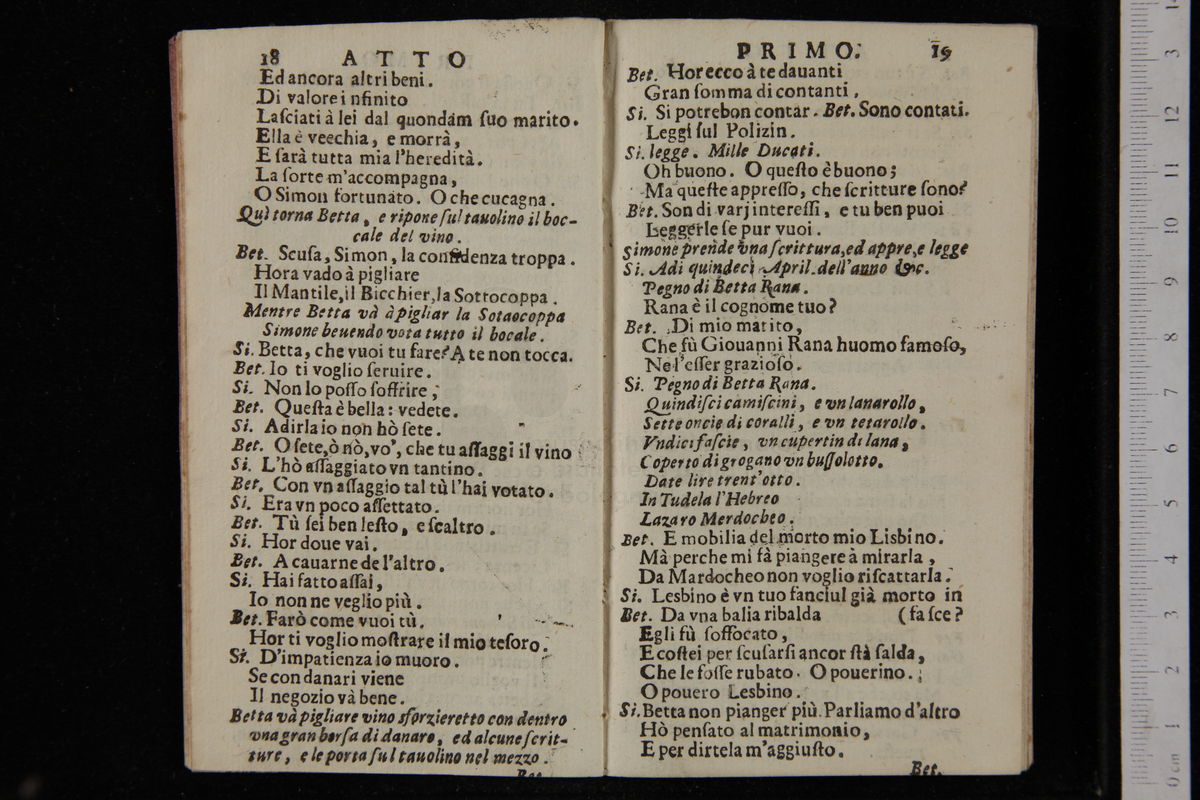 18 ATTO
Ed ancora altri beni.
Di valore infinito
Laſciati à lei dal quondam ſuo marito.
Ella è veechia, e morrà,
E ſarà tutta mia l'heredità.
La ſorte m'accompagna,
O Simon fortunato. O che cucagna.
Quì torna Betta, e ripone ſul tauolino il boc-
cale del vino.
Bet. Scuſa, Simon, la confidenza troppa.
Hora vado à pigliare
Il Mantile, il Bicchier, la Sottocoppa.
Mentre Betta và à pigliar la Sotaocoppa
Simone beuendo vota tutto il bocale.
Si. Betta, che vuoi tu fare? A te non tocca.
Bet. Io ti voglio ſeruire.
Si. Non lo poſſo ſoffrire;
Bet. Queſta è bella: vedete.
Si. Adirla io non hò ſete.
Bet. O ſete, ò nò, vo', che tu aſſaggi il vino
Si. L'hò aſſaggiato vn tantino.
Bet. Con vn aſſaggio tal tù l'hai votato.
Si. Era vn poco aſſettato.
Bet. Tù ſei ben leſto, e ſcaltro.
Si. Hor doue vai.
Bet. A cauarne de l'altro.
Si. Hai fatto aſſai,
Io non ne veglio più.
Bet. Farò come vuoi tù.
Hor ti voglio moſtrare il mio teſoro.
Si. D'impatienza io muoro.
Se con danari viene
Il negozio và bene.
Betta và pigliare vino sforzieretto con dentro
vna gran borſa di danaro, ed alcune ſcrit-
ture, e le porta ſul tauolino nel mezzo.
Bet.
PRIMO. 19
Bet. Hor ecco à te dauanti
Gran ſomma di contanti.
Si. Si potrebon contar. Bet. Sono contati.
Leggi ſul Polizin.
Si. legge. Mille Ducati.
Oh buono. O queſto è buono;
Ma queſte appreſſo, che ſcritture ſono?
Bet. Son di varj intereſſi, e tu ben puoi
Leggerle ſe pur vuoi.
Simone prende vna ſcrittura, ed appre, e legge
Si. Adi quindeci April. dell'anno &c.
Pegno di Betta Rana.
Rana è il cognome tuo?
Bet. Di mio marito,
Che fù Giouanni Rana huomo famoſo,
Ne l'eſſer grazioſo.
Si. Pegno di Betta Rana.
Quindiſci camiſcini, e vn lanarollo,
Sette oncie di coralli, e vn tetarollo.
Vndici faſcie, vn cupertin di lana,
Coperto di grogano vn buſſolotto.
Date lire trent'otto.
In Tudela l'Hebreo
Lazaro Merdocheo.
Bet. E mobilia del morto mio Lisbino.
Mà perche mi fà piangere à mirarla,
Da Mardocheo non voglio riſcattarla.
Si. Lesbino è vn tuo fanciul già morto in
Bet. Da vna balia ribalda (faſce?
Egli fù ſoffocato,
E coſtei per ſcuſarſi ancor ſtà ſalda,
Che le foſſe rubato. O pouerino.
O pouero Lesbino.
Si. Betta non pianger più. Parliamo d'altro
Hò penſato al matrimonio,
E per dirtela m'aggiuſto.
Bet.